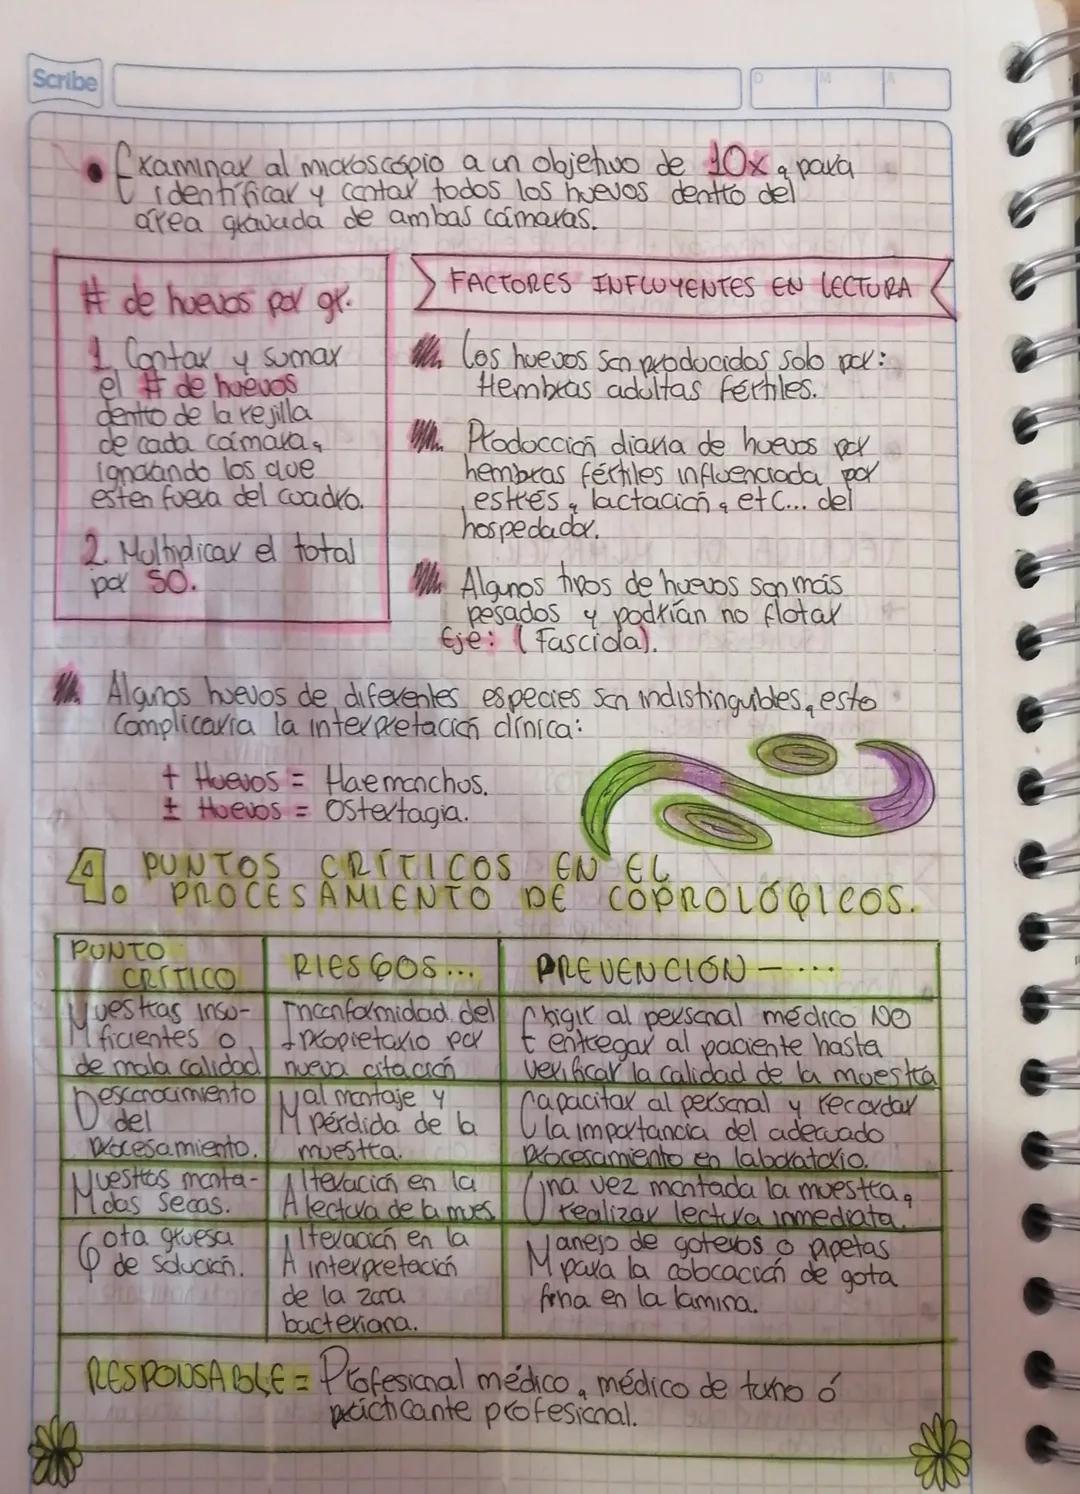 Scribe
D M A
• Examinar al microscópio a un objetivo de 10x, para
identificar y contar todos los huevos dentro del
área gravada de ambas cámaras.
# de huevos por gr.
1. Contar y sumar
el # de huevos
dentro de la rejilla
de cada cámara,
ignorando los que
esten fuera del cuadro.
2. Multiplicar el total
por 50.
FACTORES INFLUYENTES EN LECTURA
Los huevos son producidos solo por:
Hembras adultas fértiles.
Producción diaria de huevos por
hembras fértiles influenciada por
estrés, lactación, etc... del
hospedador.
Algunos tipos de huevos son más
pesados y podrían no flotar
Eje: (Fasciola).
Algunos huevos de diferentes especies son indistinguibles, esto
complicaría la interpretación clínica:
+ Huevos = Haemonchos.
± Huevos = Ostertagia.
4. PUNTOS CRÍTICOS EN EL
PROCESAMIENTO DE COPROLÓGICOS.
PUNTO
CRÍTICO
RIESGOS...
PREVENCIÓN – ...
Muestras insu-
ficientes o
de mala calidad
Inconformidad del
propietario por
nueva citación
Exigir al personal médico NO
entregar al paciente hasta
verificar la calidad de la muestra
Desconocimiento
del
procesamiento.
Mal montaje y
pérdida de la
muestra.
Capacitar al personal y recordar
la importancia del adecuado
procesamiento en laboratorio.
Muestras monta-
das secas.
Alteración en la
lectura de la mues
Una vez montada la muestra,
realizar lectura inmediata.
Gota gruesa
de solución.
Alteración en la
interpretación
de la zona
bacteriana.
Manejo de goteros o pipetas
para la colocación de gota
fina en la lamina.
RESPONSABLE = Profesional médico, médico de turno ó
practicante profesional.